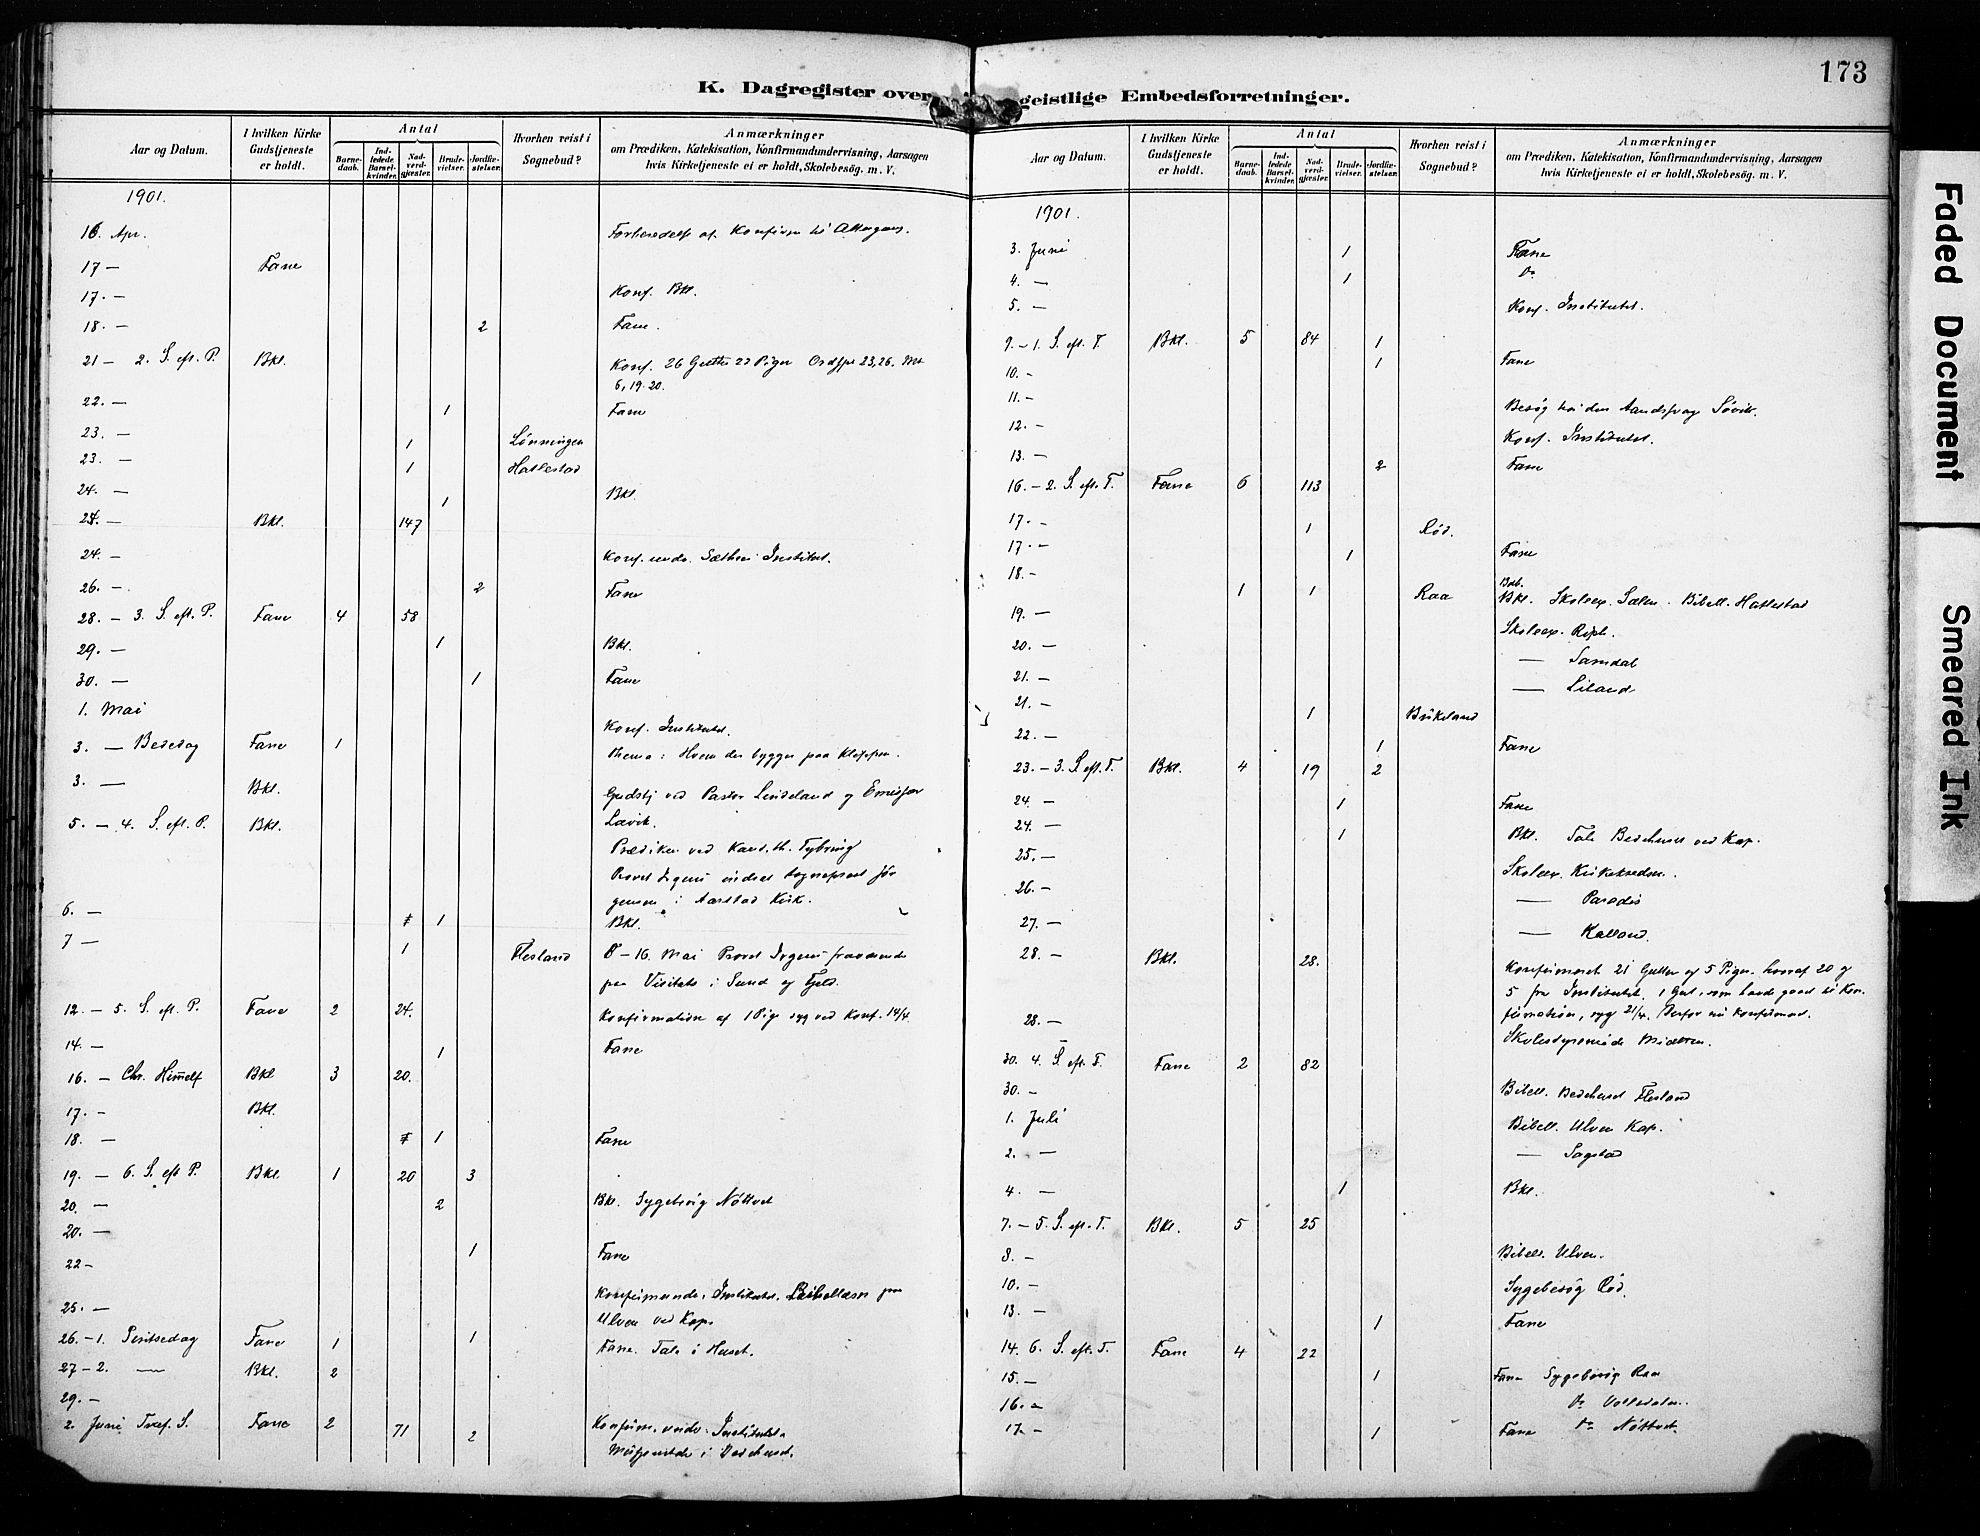 173
K. Dagregister over geistlige Embedsforretninger.
Aar og Datum. | I hvilken Kirke Gudstjeneste er holdt. | Antal | Barnedaab. | Indledede Barselkvinder. | Nadverdgjester. | Brudevielser. | Jordfæstelser. | Hvorhen reist i Sognebud? | Anmærkninger om Prædiken, Katekisation, Konfirmandundervisning, Aarsagen hvis Kirketjeneste ei er holdt, Skolebesög. m. V.
1901.
16. Apr. Forberedelse af Konfirm til Altergang.
17 — Fane
17. — Konf. Bkl.
18. — 2 Fane.
21 — 2. S. eft. P. Bkl. Konf. 26 Gutter 22 Piger Ordspr 23,26. Mt
6, 19-20.
22. — 1 Fane
23. — 1 Lönningen
23. — 1 Hatlestad
24. — 1 Bkl.
24. — Bkl. 147
24. — Konf. unde. Institut.
26. — 2 Fane
28. — 3. S. eft. P. Fane 4 58
29. — 1 Bkl.
30. — 1 Fane
1. Mai Konf. Institutet.
3. — Bededag Fane 1 Thema: Hvem der bygger paa Klippen.
3. — Bkl. Gudstj ved Pastor Lindeland og Emissær
Lavik.
5. — 4. S. eft. P. Bkl. Prædiken ved Kand. th. Tybring
Provst Irgens indsat Sogneprest Jör
gensen i Aarstad Kirk.
6. — 1 Bkl.
7 — 1 Flesland 8 — 16. Mai Provst Irgens fraværende
paa Visitats i Sund og Fjeld.
12. — 5. S. eft. P. Fane 2 24. Konfirmation af 1 Pige syg ved Konf. 14/4
14. — 1 Fane
16. — Chr. Himmelf Bkl 3 20.
17. — Bkl.
18. — 1 Fane
19. — 6. S. eft P. Bkl 1 20 3
20. — 2 Bkl. Sygebesög Nöttvet
20. —
22 — 1 Fane
25. — Konfirmande. Institutet. Bibellæsn paa
Ulven ved Kap.
26. — 1. Pintsedag Fane 1 1 Fane. Tale i Huset.
27 — 2. — Bkl. 2
29. —
2. Juni Tref. S. Fane 2 71 2 Konfirm. unde. Institutet.
i Bedehuset.
Aar og Datum. | I hvilken Kirke Gudstjeneste er holdt. | Antal | Barnedaab. | Indledede Barselkvinder. | Nadverdgjester. | Brudevielser. | Jordfæstelser. | Hvorhen reist i Sognebud? | Anmærkninger om Prædiken, Katekisation, Konfirmandundervisning, Aarsagen hvis Kirketjeneste ei er holdt, Skolebesög. m. V.
1901.
3. Juni 1 Fane
4. — 1 Do
5. — Konf. Institutet.
9. — 1. S. eft. T. Bkl. 5 84 1
10. — 1 Fane
11. — Besög hos den Aandssvag Sövik.
12. — Konf. Institutet.
13. — 2 Fane
16. — 2. S. eft. T. Fane 6 113
17. — 1 Röd.
17. — 1 Fane
18. — 1 1 Raa Bkl. Skoleex. Sælen. Bibell. Hatlestad
19. — Skoleex.
20. — — Samdal
21. — — Liland
21. — 1 Birkeland
22. — 1 Fane
23. — 3. S. eft. T. Bkl. 4 19 2
24. — 1 Fane
24. — 1 Bkl. Tale Bedehuset ved Kap.
25. — Skoleex. Kirkekredsen.
26. — — Paradis
27. — — Kalland.
28. — Bkl. 28. Konfirmeret 21 Gutter og 5 Piger hvoraf 20 og
5 fra Institutet. 1 Gut, som havde gaaet til Kon
firmation, syg 21/4. Derfor nu konfirmeret.
28. — Skolestyremöde Midttun.
30. 4. S. eft. T. Fane 2 82
30. — Bibell. Bedehuset Flesland
1. Juli Bibell. Ulven Kap.
2. — — Sagstad
4. — 1 Bkl.
7. — 5. S. eft. T. Bkl. 5 25
8. — Bibell. Ulven.
10. — Sygebesög Röd.
13. — 1 Fane
14. 6. S. eft. T. Fane 4 22
15. — 1 Fane Sygebesög Raa
16. — Do
17. — 1 Fane Do Nöttvet.
Faded Document
Smeared Ink